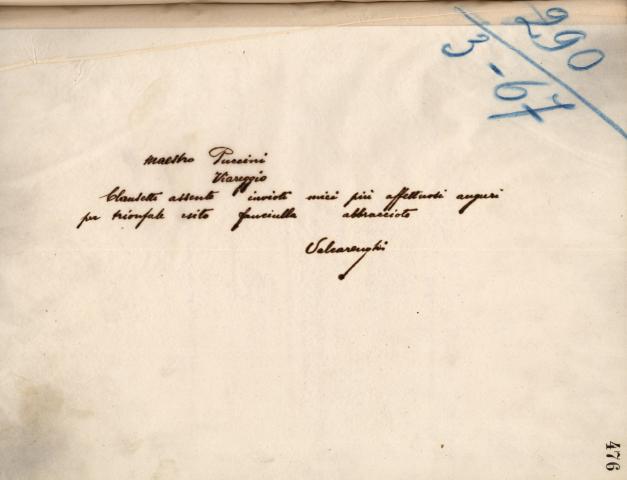 290
3-67
Maestro Puccini
Viareggio
Clausetti assente inviovi miei più affettuosi auguri
per trionfale esito fanciulla abbracciovi
Valcarenghi
476